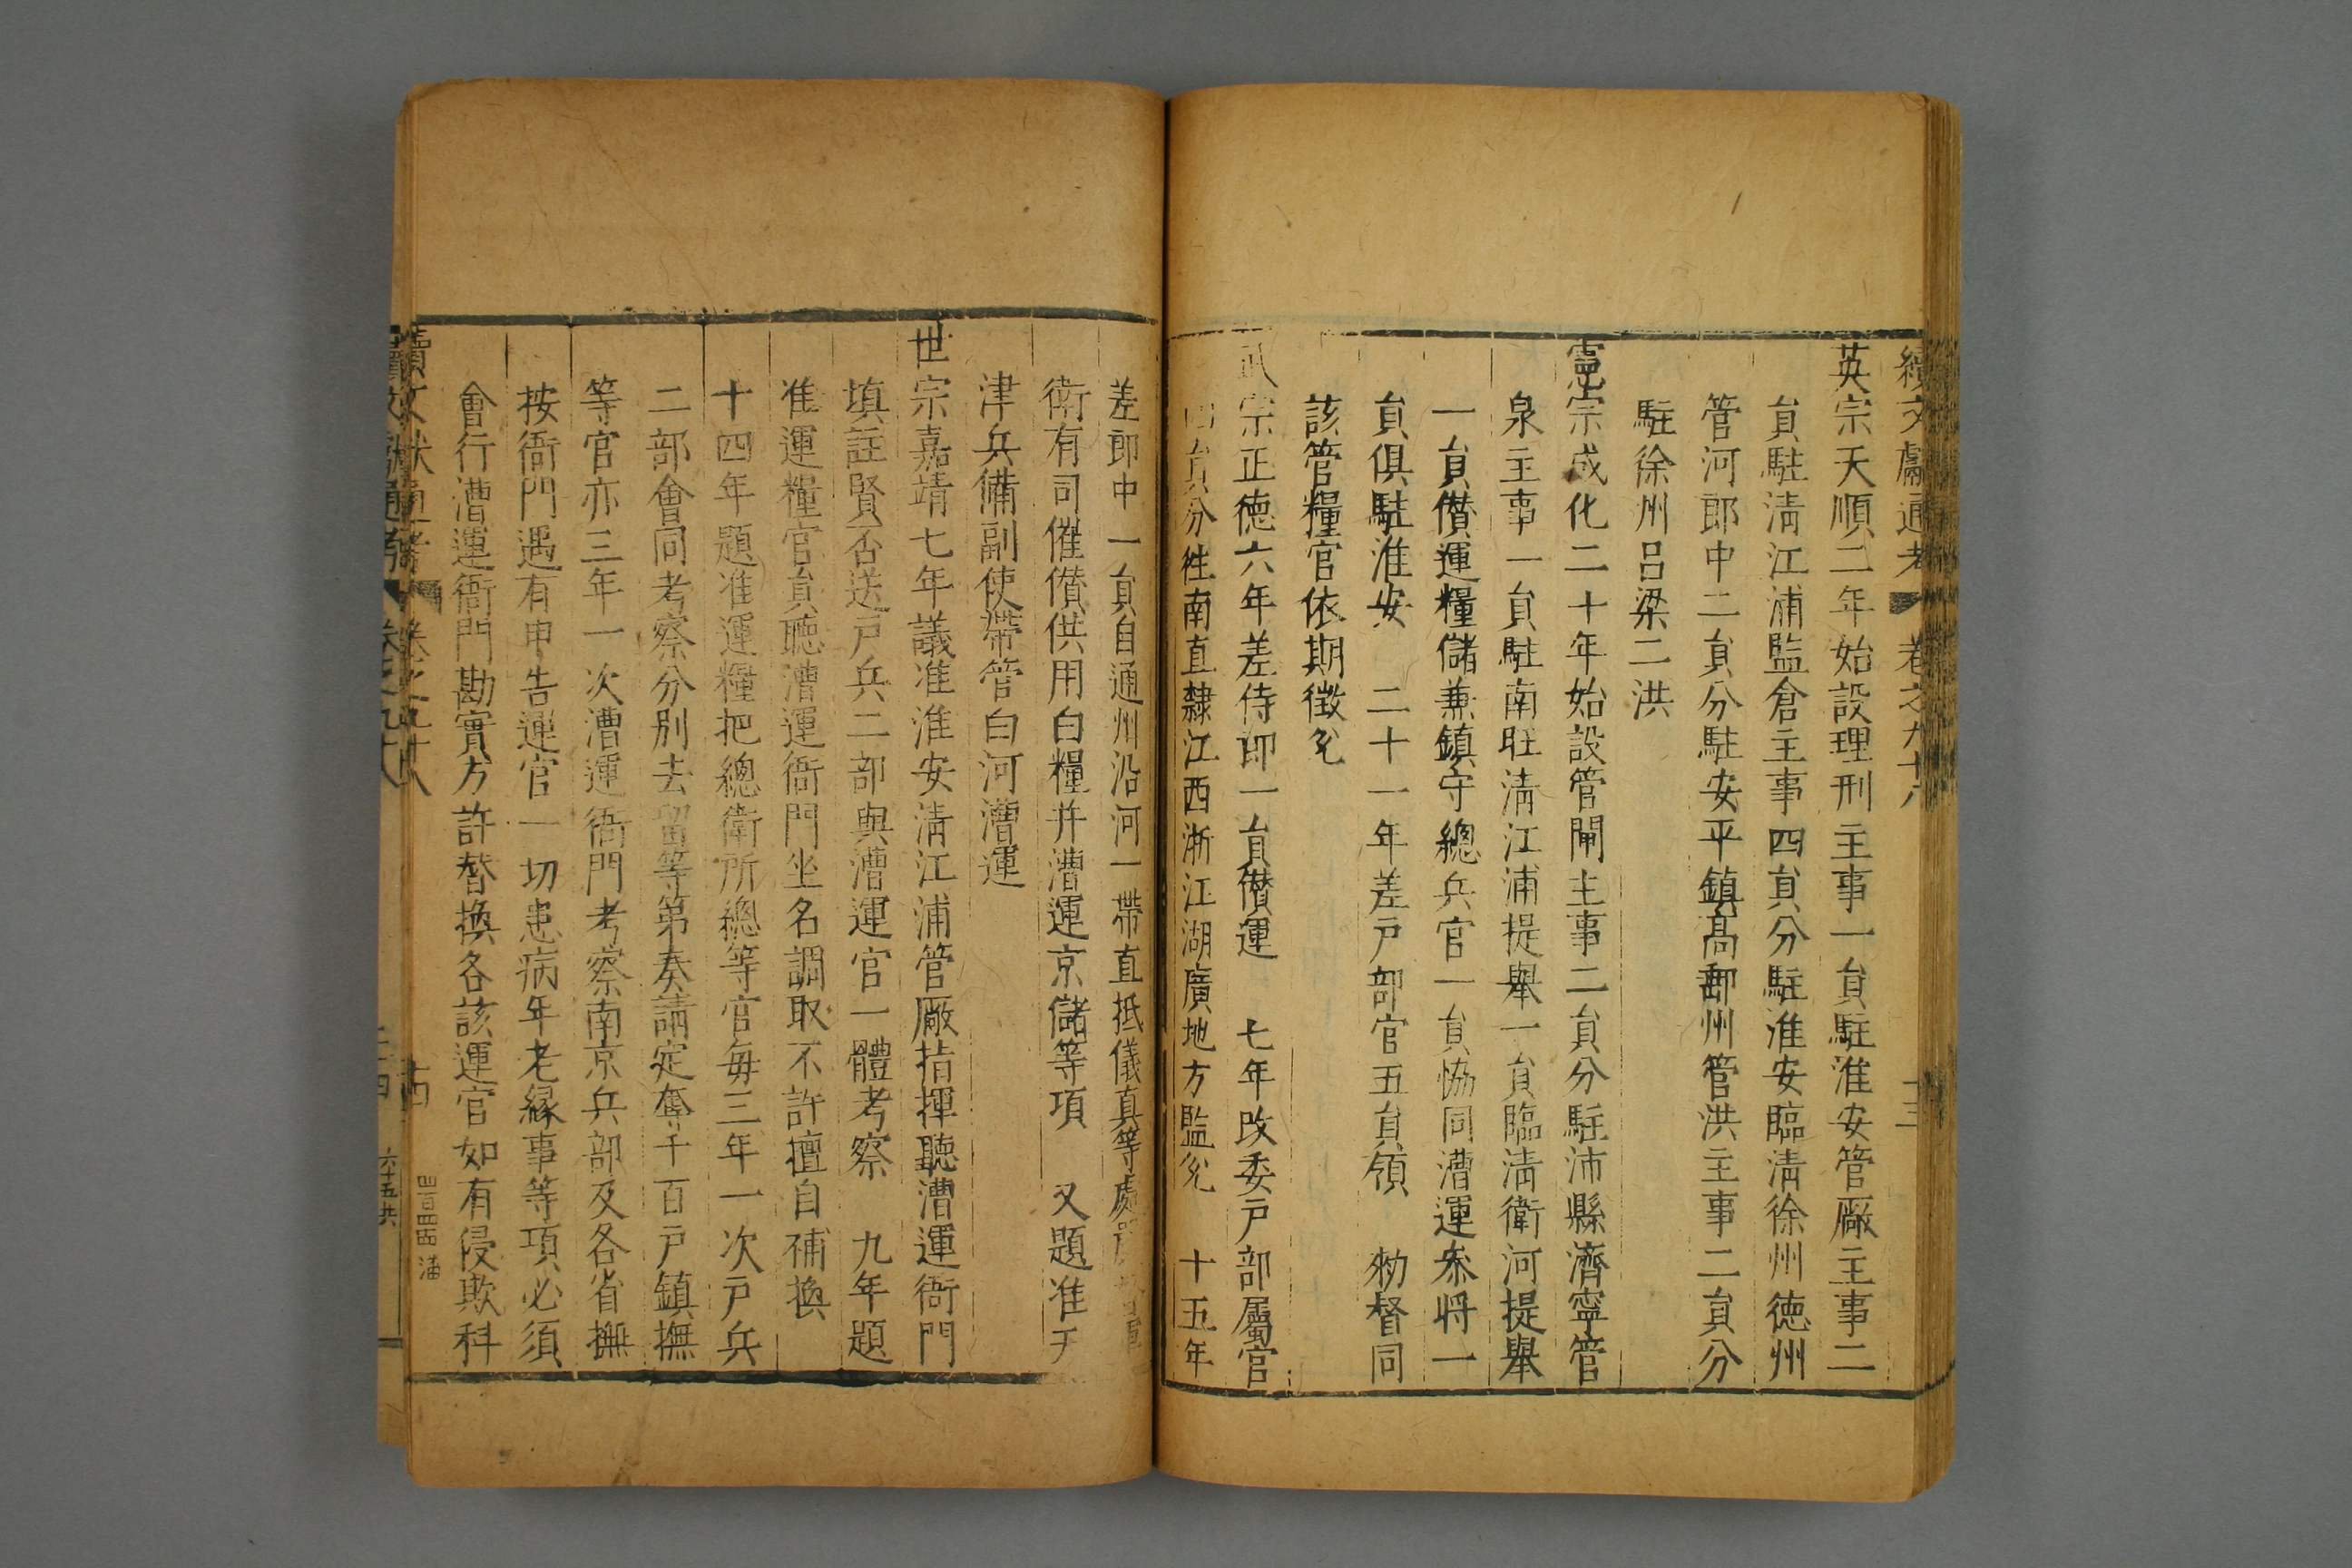 續文獻通考 卷之九十八 十三
英宗天順二年始設理刑主事一負駐淮安管廠主事二
負駐清江浦監倉主事四負分駐淮安臨清徐州徳州
管河郎中二負分駐安平鎮髙郵州管洪主事二負分
駐徐州吕梁二洪
憲宗成化二十年始設管閘主事二負分駐沛縣濟寧管
泉主事一負駐南旺清江浦提舉一負臨清衛河提舉
一負儹運糧儲兼鎮守總兵官一負恊同漕運叅将一
負俱駐淮安 二十一年差戸部官五負領 勑督同
該管糧官依期徵兊
武宗正徳六年差侍郎一負儹運 七年改委戸部屬官
四負分徃南直隸江西浙江湖廣地方監兊 十五年
差郎中一負自通州沿河一帶直抵儀真等處
衛有司催儹供用白糧并漕運京儲等項 又題准天
津兵備副使帶管白河漕運
世宗嘉靖七年議准淮安清江浦管廠指揮聽漕運衙門
填註賢否送戸兵二部與漕運官一體考察 九年題
准運糧官負聽漕運衙門坐名調取不許擅自補換
十四年題准運糧把總衛所總等官毎三年一次戸兵
二部會同考察分別去留等第奏請定奪千百戸鎮撫
等官亦三年一次漕運衙門考察南京兵部及各省撫
按衙門遇有申告運官一切患病年老緣事等項必須
會行漕運衙門勘實方許替換各該運官如有侵欺科
續文獻通考 卷之九十八 十四